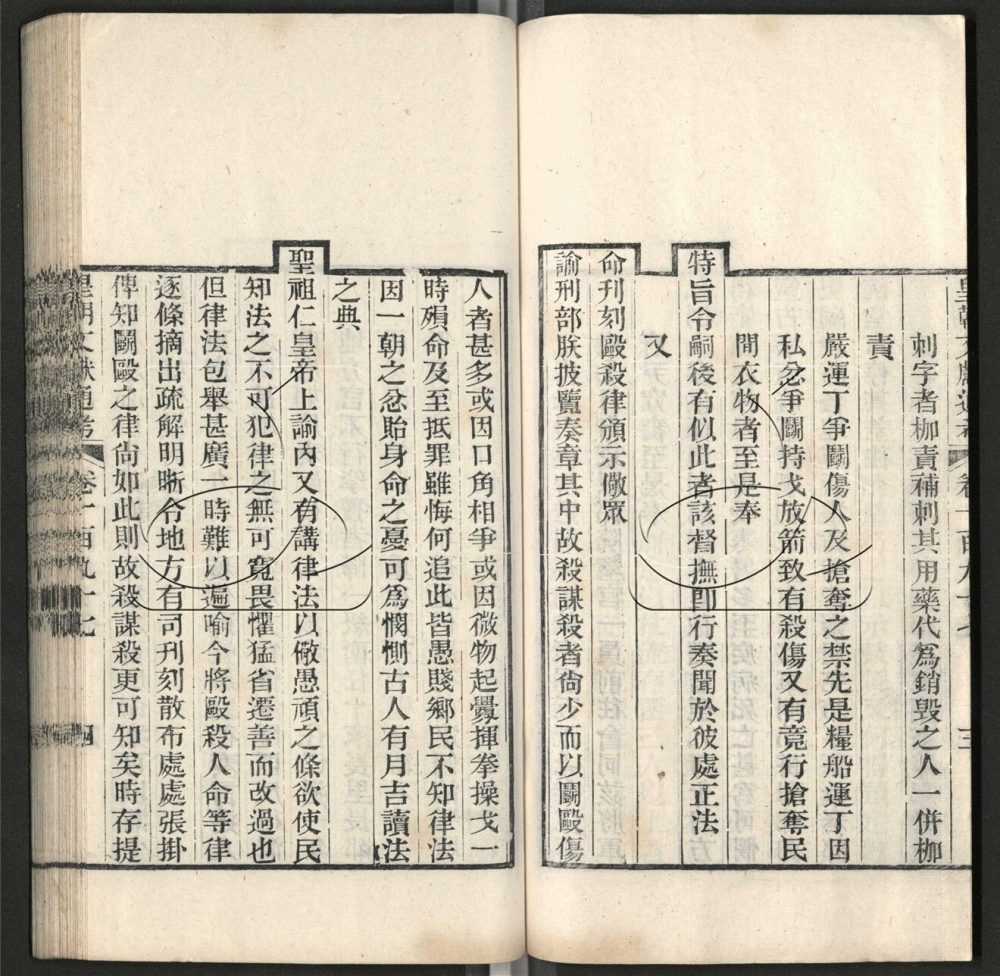 皇朝文獻通考 卷一百九十七 三
刺字者枷責補刺其用藥代爲銷毀之人一併枷
責
嚴運丁爭鬭傷人及搶奪之禁先是糧船運丁因
私忿爭鬭持戈放箭致有殺傷又有竟行搶奪民
間衣物者至是奉
特旨令嗣後有似此者該督撫卽行奏聞於彼處正法
又
命刊刻毆殺律頒示儆眾
諭刑部朕披覽奏章其中故殺謀殺者尙少而以鬭毆傷
人者甚多或因口角相爭或因微物起釁揮拳操戈一
時殞命及至抵罪雖悔何追此皆愚賤鄉民不知律法
因一朝之忿貽身命之憂可爲憫惻古人有月吉讀法
之典
聖祖仁皇帝上諭內又有講律法以儆愚頑之條欲使民
知法之不可犯律之無可寬畏懼猛省遷善而改過也
但律法包舉甚廣一時難以遍喻今將毆殺人命等律
逐條摘出疏解明晰令地方有司刊刻散布處處張掛
傳知鬭毆之律尙如此則故殺謀殺更可知矣時存提
皇朝文獻通考 卷一百九十七 四